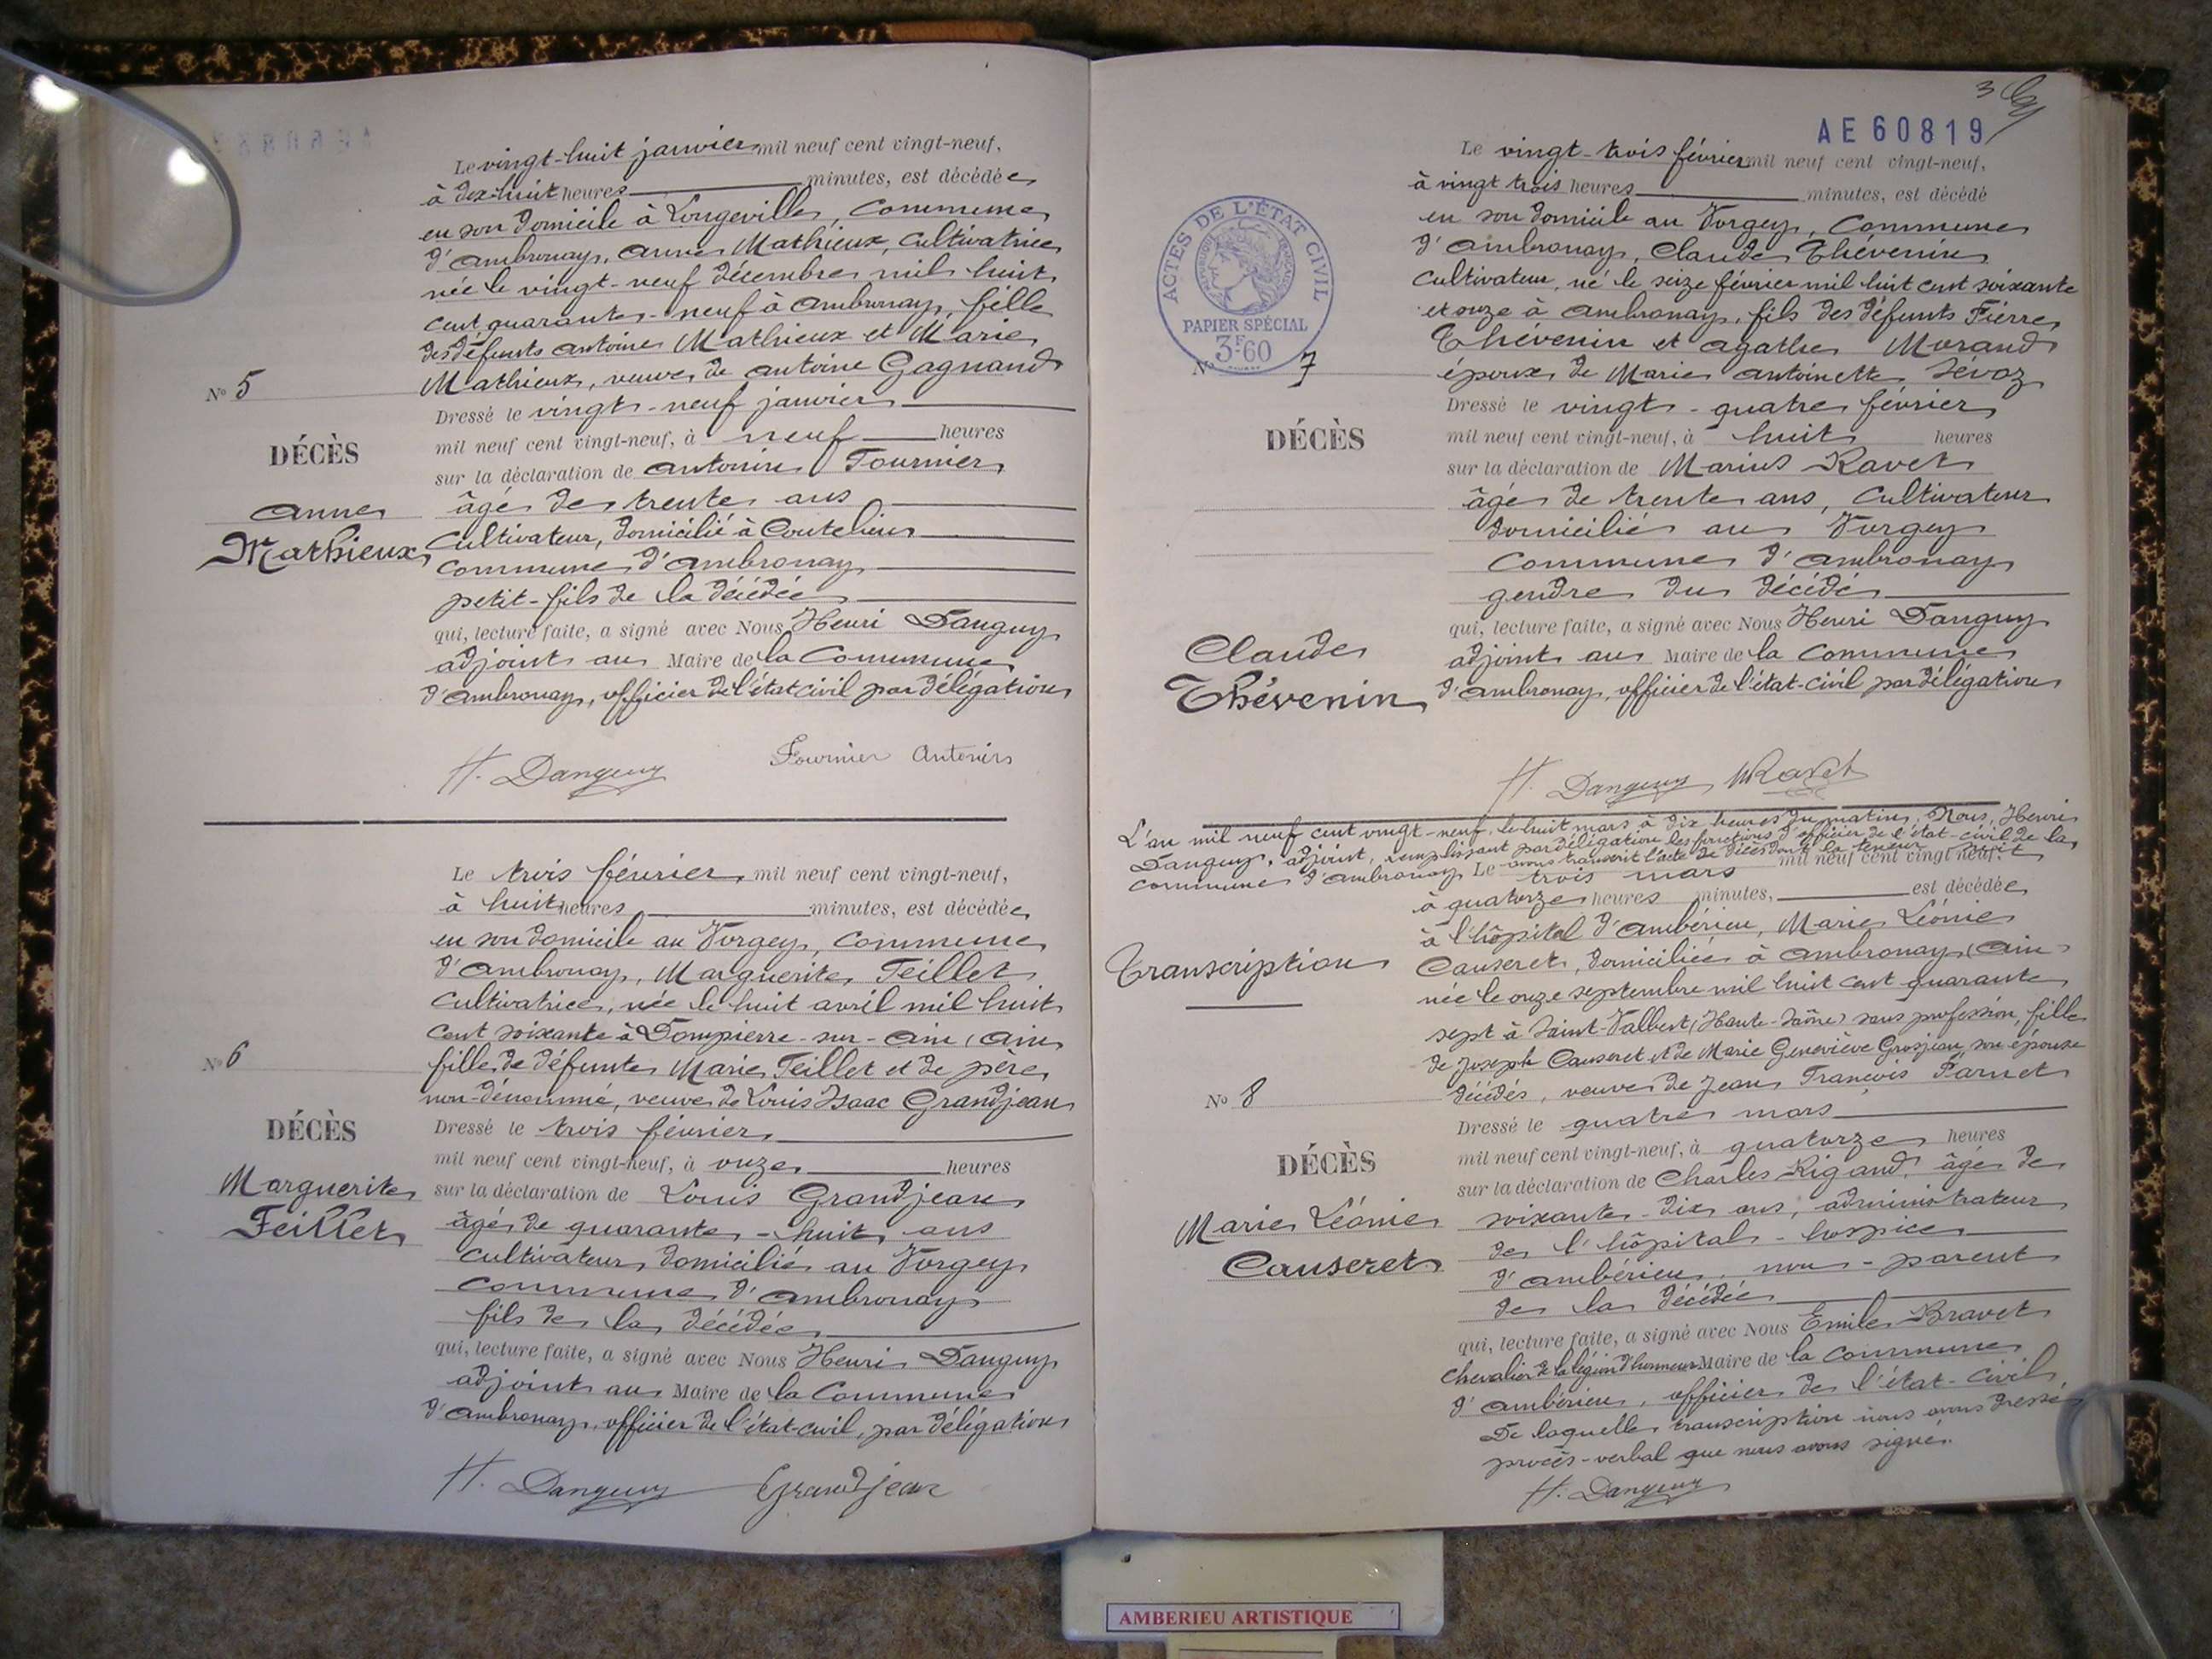 Le vingt-huit janvier mil neuf cent vingt-neuf,
à dix-huit heures minutes, est décédée
en son domicile à Longeville, commune
d'Ambronay, Anne Mathieux, cultivatrice
née le vingt-neuf décembre mil huit
cent quarante-neuf à Ambronay, fille
des défunts Antoine Mathieux et Marie
Mathieux, veuve de Antoine Gagnand
No 5
Dressé le vingt-neuf janvier
mil neuf cent vingt-neuf, à neuf heures
DÉCÈS
sur la déclaration de Antonin Fournier
Anne
Mathieux
âgé de trente ans
cultivateur, domicilié à Coutelieu
commune d'Ambronay
petit-fils de la décédée
qui, lecture faite, a signé avec Nous Henri Danguy
adjoint au Maire de la Commune
d'Ambronay, officier de l'état civil par délégation
H. Danguy Fournier Antonin
Le trois février, mil neuf cent vingt-neuf,
à huit heures minutes, est décédée
en son domicile au Vorgey, commune
d'Ambronay, Marguerite Feillet
cultivatrice, née le huit avril mil huit
cent soixante à Dompierre-sur-Ain (Ain
fille de défunte Marie Feillet et de père
non-dénommé, veuve de Louis Isaac Grandjean
No 6
Dressé le trois février
mil neuf cent vingt-neuf, à onze heures
DÉCÈS
Marguerite
Feillet
sur la déclaration de Louis Grandjean
âgé de quarante-huit ans
cultivateur, domicilié au Vorgey
commune d'Ambronay
fils de la décédée
qui, lecture faite, a signé avec Nous Henri Danguy
adjoint au Maire de la Commune
d'Ambronay, officier de l'état-civil, par délégation
H. Danguy Grandjean
3
AE 60819
ACTES DE L'ÉTAT CIVIL
PAPIER SPÉCIAL
3F60
Le vingt-trois février mil neuf cent vingt-neuf,
à vingt trois heures minutes, est décédé
en son domicile au Vorgey, Commune
d'Ambronay, Claude Thévenin
cultivateur, né le seize février mil huit cent soixante
et onze à Ambronay, fils des défunts Pierre
Thévenin et Agathe Morand
époux de Marie Antoinette Sévoz
No 7
Dressé le vingt-quatre février
mil neuf cent vingt-neuf, à huit heures
DÉCÈS
sur la déclaration de Marius Ravet
âgé de trente ans, cultivateur
domicilié au Vorgey
commune d'Ambronay
gendre du décédé
Claude
Thévenin
qui, lecture faite, a signé avec Nous Henri Danguy
adjoint au Maire de la Commune
d'Ambronay, officier de l'état-civil par délégation
H. Danguy MRavet
L'an mil neuf cent vingt-neuf, le huit mars à dix heures du matin, Nous, Henri
Danguy, adjoint, remplissant par délégation les fonctions d'officier de l'état-civil de la
commune d'Ambronay avons transcrit l'acte de décès dont la teneur suit
Le trois mars mil neuf cent vingt neuf.
à quatorze heures minutes, est décédée
à l'hôpital d'Ambérieu, Marie Léonie
Transcription
Causeret, domiciliée à Ambronay (Ain
née le onze septembre mil huit cent quarante
sept à Saint-Valbert (Haute-Saône) sans profession, fille
de Joseph Causeret et de Marie Geneviève Grosjean, son épouse
décédés, veuve de Jean François Parnet
No 8
Dressé le quatre mars
mil neuf cent vingt-neuf, à quatorze heures
DÉCÈS
Marie Léonie
Causeret
sur la déclaration de Charles Rigaud, âgé de
soixante-dix ans, administrateur
de l'hôpital-hospice
d'Ambérieu, non-parent
de la décédée
qui, lecture faite, a signé avec Nous Emile Bravet
Chevalier de la légion d'honneur Maire de la Commune
d'Ambérieu, officier de l'état-civil
De laquelle transcription nous avons dressé
procès-verbal que nous avons signé.
H. Danguy
AMBERIEU ARTISTIQUE